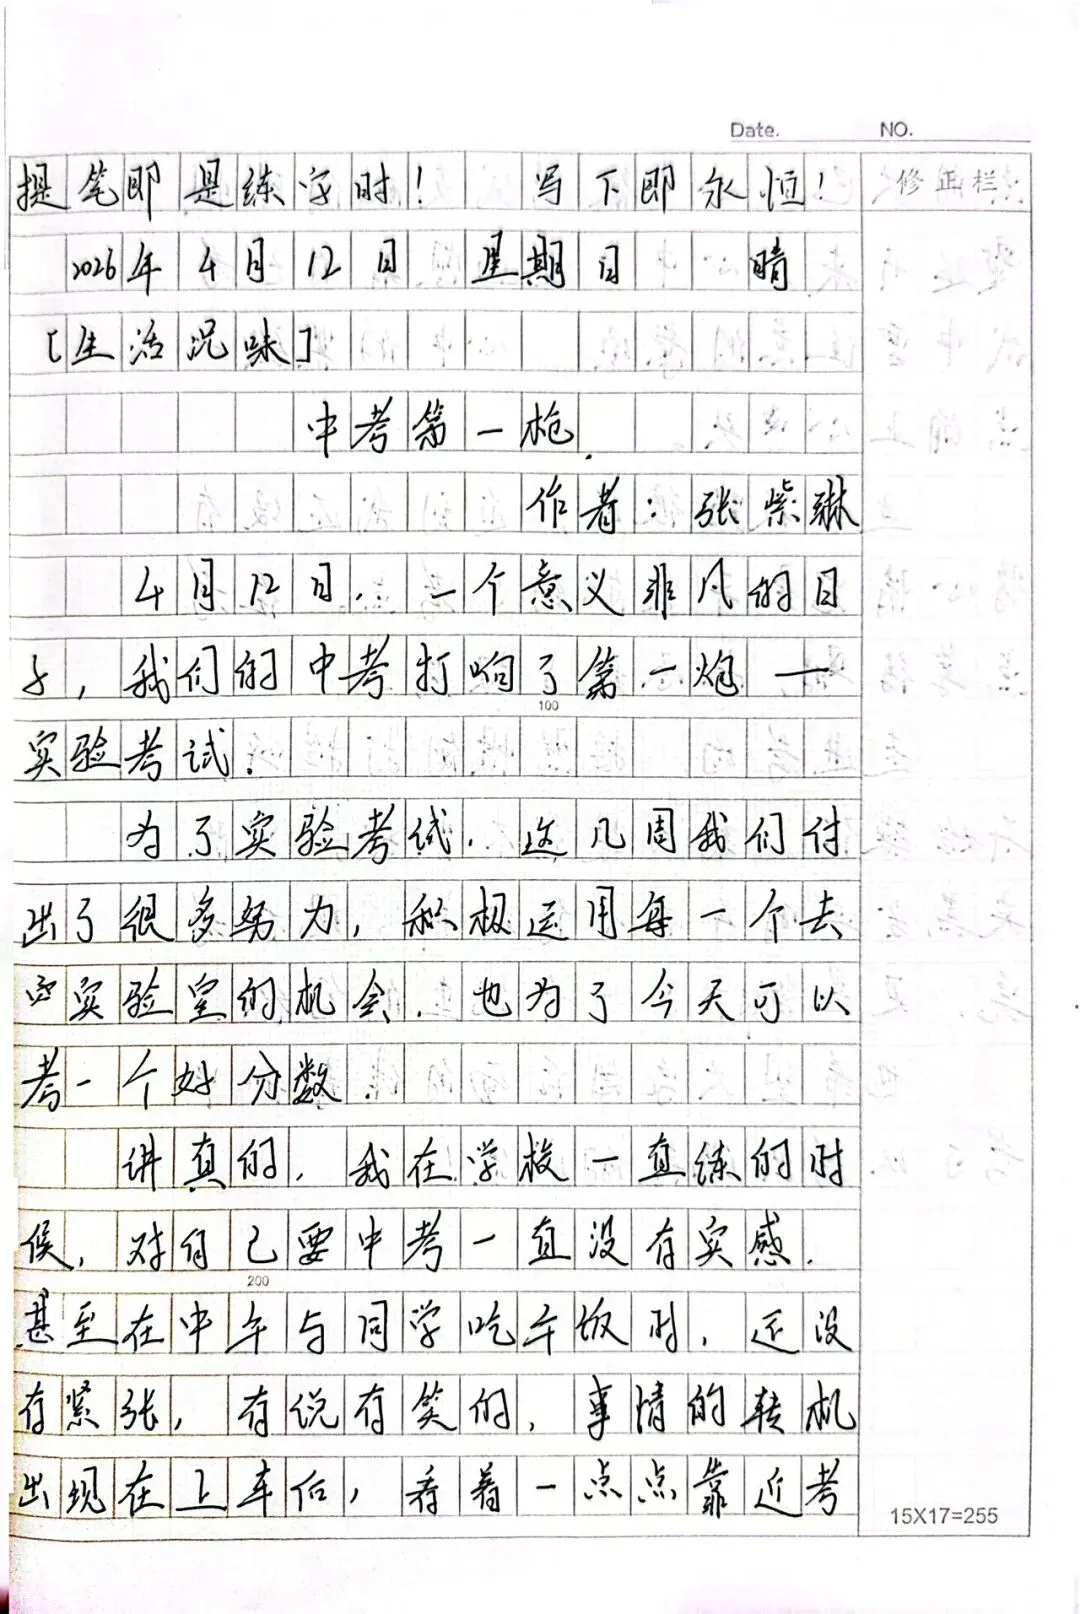 Date. NO.
提笔即是练字时! 写下即永恒! 修正栏
2026年4月12日 星期日 晴
[生活况味]
中考第一枪.
作者:张紫琳
4月12日,一个意义非凡的日
子,我们的中考打响了第一炮—
100
实验考试.
为了实验考试.这几周我们付
出了很多努力,积极运用每一个去
实验室的机会.也为了今天可以
考一个好分数.
讲真的,我在学校一直练的时
候,对自己要中考一直没有实感.
200
甚至在中午与同学吃午饭时,还没
有紧张,有说有笑的,事情的转机
出现在上车后,看着一点点靠近考
15X17=255